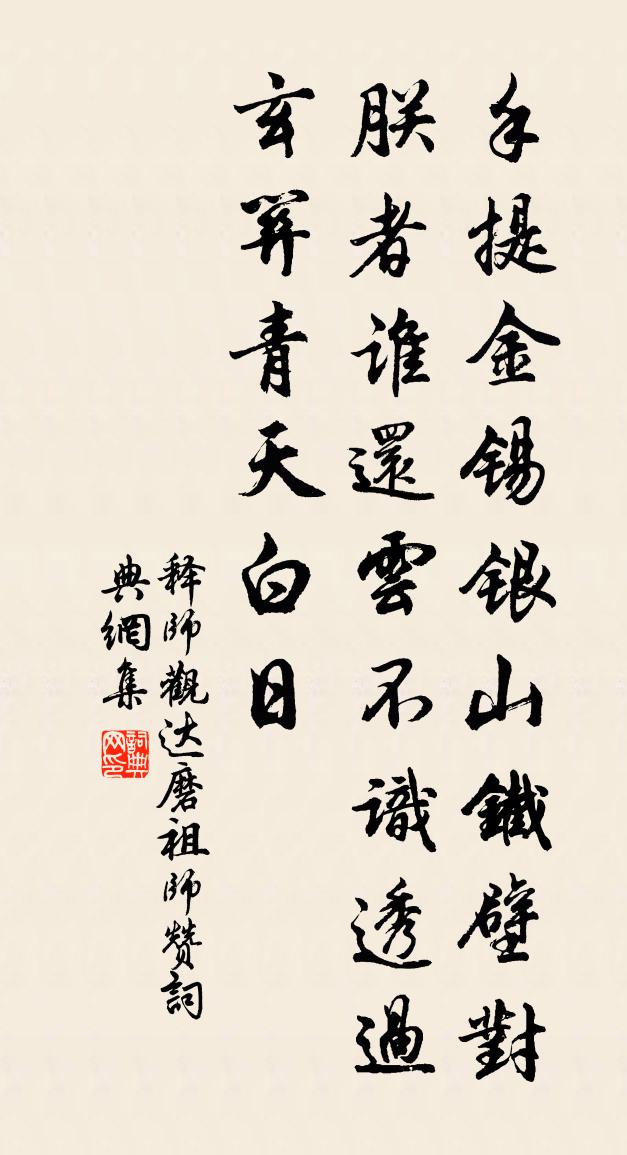 手提金錫銀山鐵壁對
朕者誰還雲不識透過
玄關青天白日
释師觀达磨祖師贊詞
典網集
詞典
网印